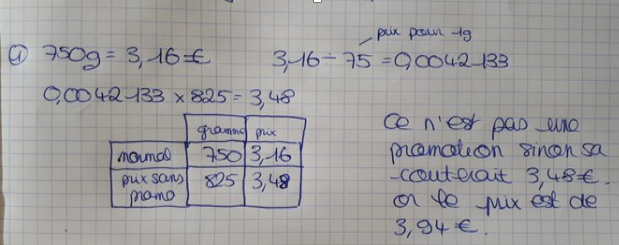 prix pour 1g
① 750g = 3,16€ 3,16 ÷ 75 = 0,0042133
0,0042133 × 825 = 3,48
gramme prix
normal 750 3,16
prix sans promo 825 3,48
Ce n'est pas une
promotion sinon sa
couterait 3,48€.
or le prix est de
3,94€.